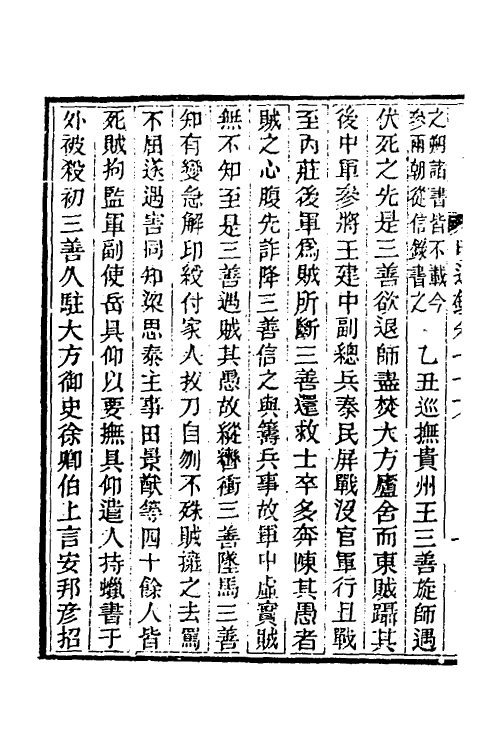 之㓂諸書皆不載今
參兩朝從信錄書之
乙丑巡撫貴州王三善旋師遇
伏死之先是三善欲退師盡焚大方廬舍而東賊躡其
後中軍參將王建中副總兵秦民屏戰沒官軍行且戰
至內莊後軍爲賊所斷三善還救士卒多奔陳其愚者
賊之心腹先詐降三善信之與籌兵事故軍中虛實賊
無不知至是三善遇賊其愚故縱轡衝三善墜馬三善
知有變急解印綬付家人拔刀自刎不殊賊擁之去罵
不屈遂遇害同知梁思泰主事田景猷等四十餘人皆
死賊拘監軍副使岳具仰以要撫具仰遣人持蠟書于
外被殺初三善久駐大方御史徐卿伯上言安邦彥招